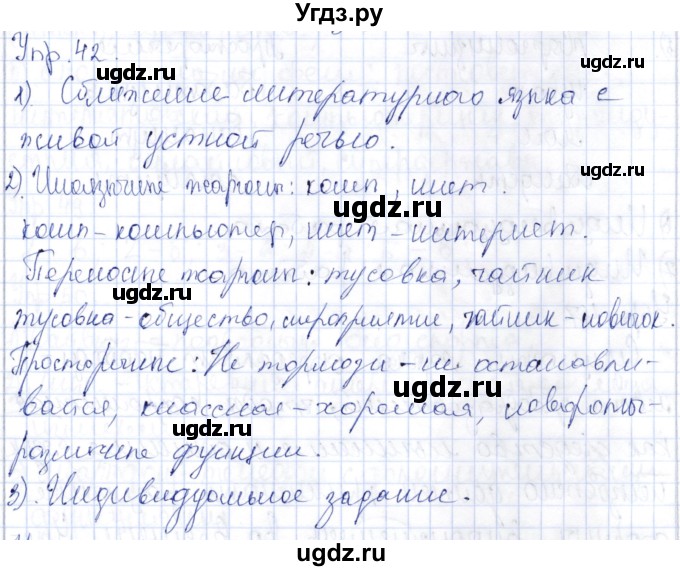 Угдз.ру
Упр. 42.
ugdz.ru ugdz.ru
1). Сближение литературного языка с
живой устной речью.
ugdz.ru
2). Иноязычные жаргоны: комп, инет.
ugdz.ru
комп - компьютер, инет - интернет.
Переносные жаргоны: тусовка, чайник
ugdz.ru
тусовка - общество, мероприятие, чайник - новичок.
Просторечные: Не тормози - не останавли-
ugdz.ru
вайся, классная - хорошая, навороты -
ugdz.ru
различные функции.
3). Индивидуальное задание.
ugdz.ru
ugdz.ru